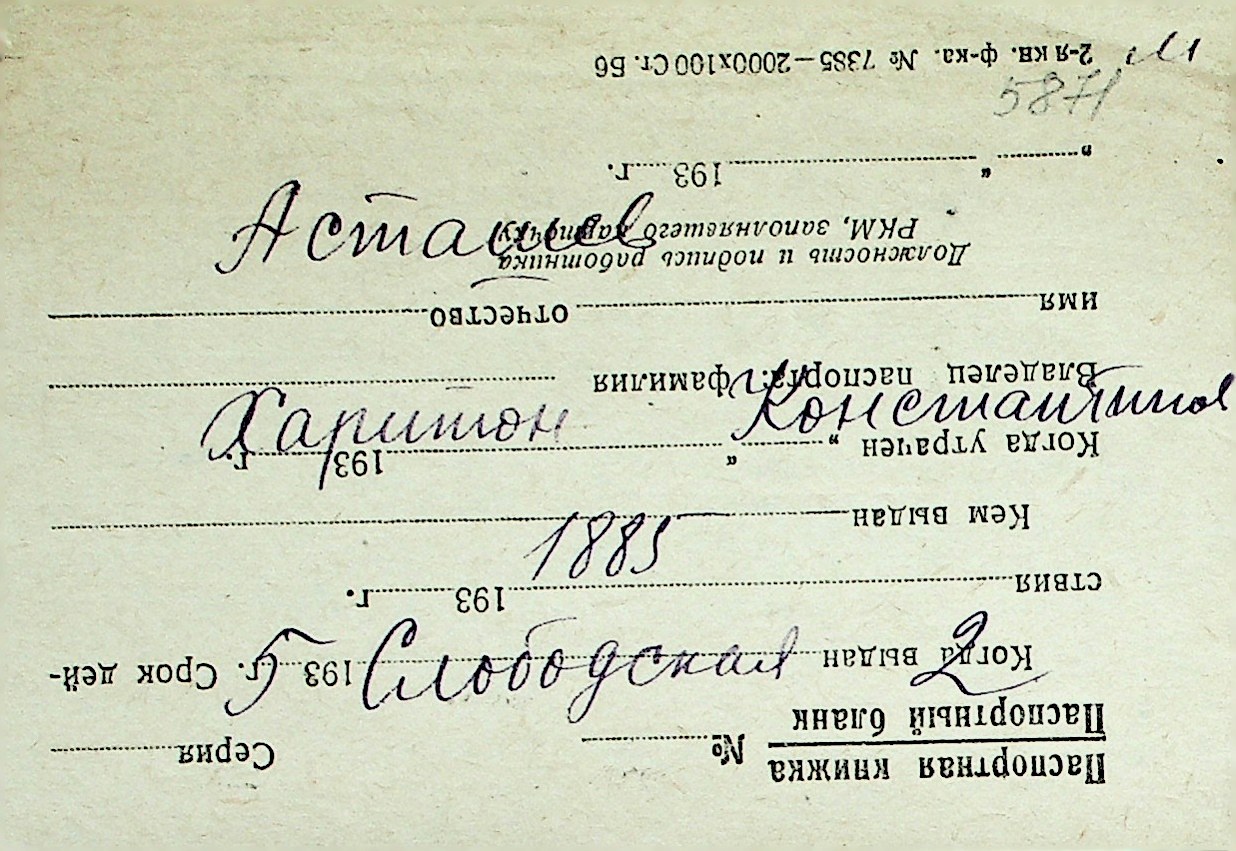 М
5871
Асташев
Харитон Константинов
1885
5 Слободская 2
Паспортная книжка
Паспортный бланк № Серия
Когда выдан 193 г. Срок дей-
ствия 193 г.
Кем выдан
Когда утрачен " " 193 г.
Владелец паспорта: фамилия
имя отчество
Должность и подпись работника
РКМ, заполняевшего карточку
" " 193 г.
2-я кв. ф-ка. № 7385—2000х100 Ст. Б6